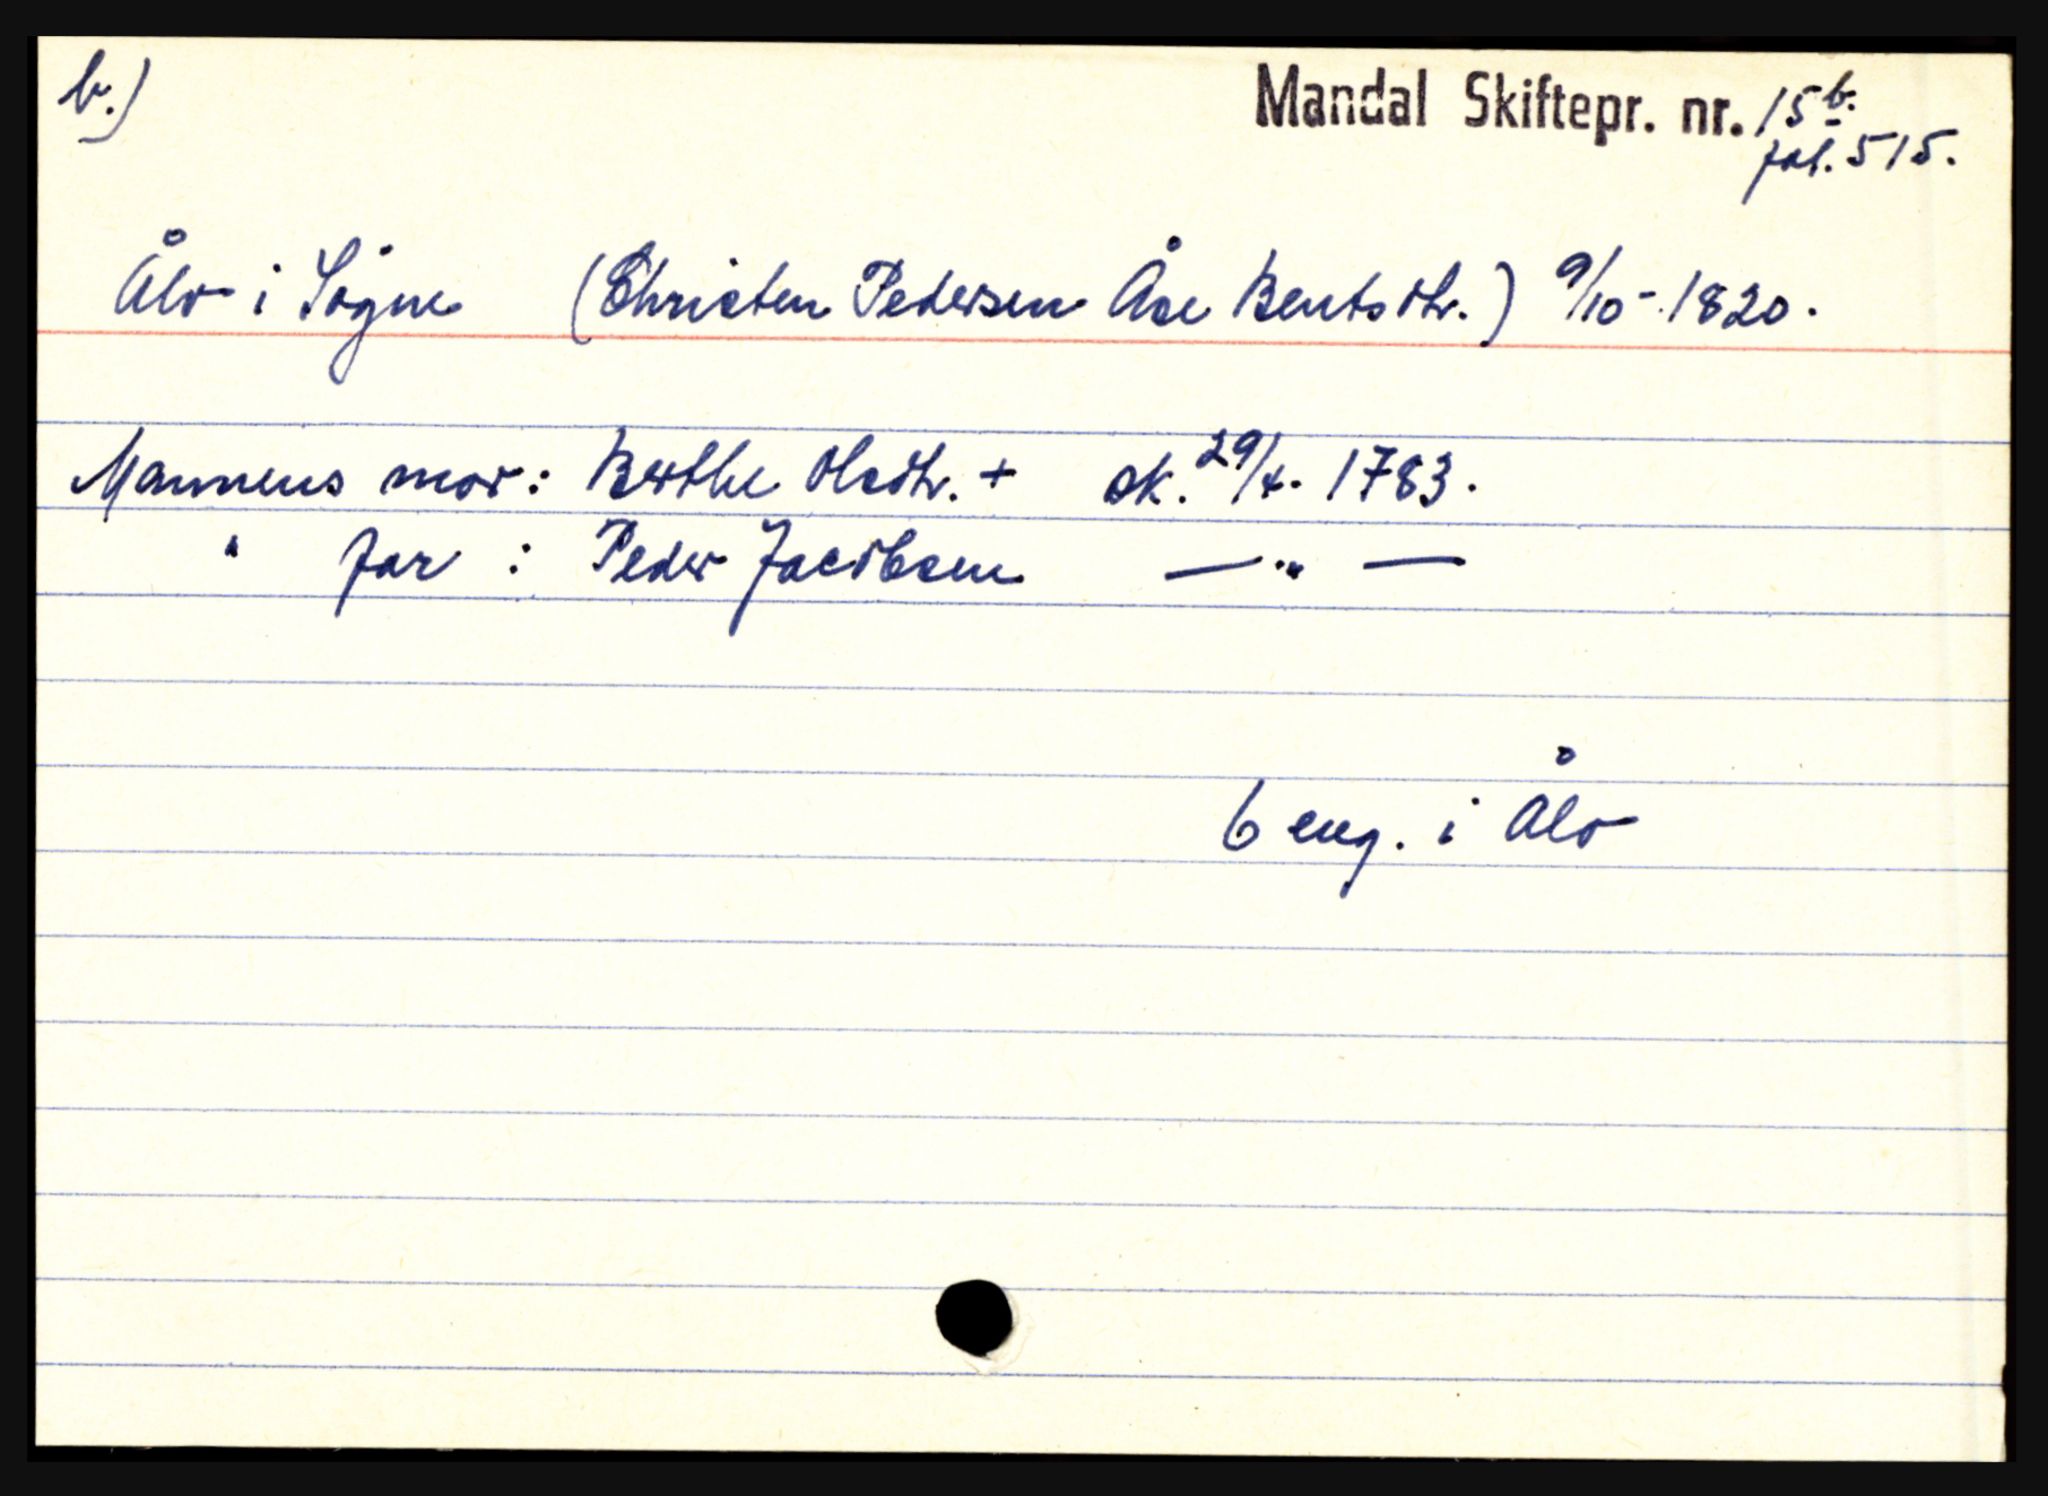 b.)
Mandal Skiftepr. nr. 15 b.
fol. 515.
Ålo i Søgne (Christen Pedersen Åse Bentsdtr.) 9/10-1820.
Mannens mor: Berthe Olsdtr. + sk. 29/4. 1783.
" far : Peder Jacobsen — " —
6 eng. i Ålo